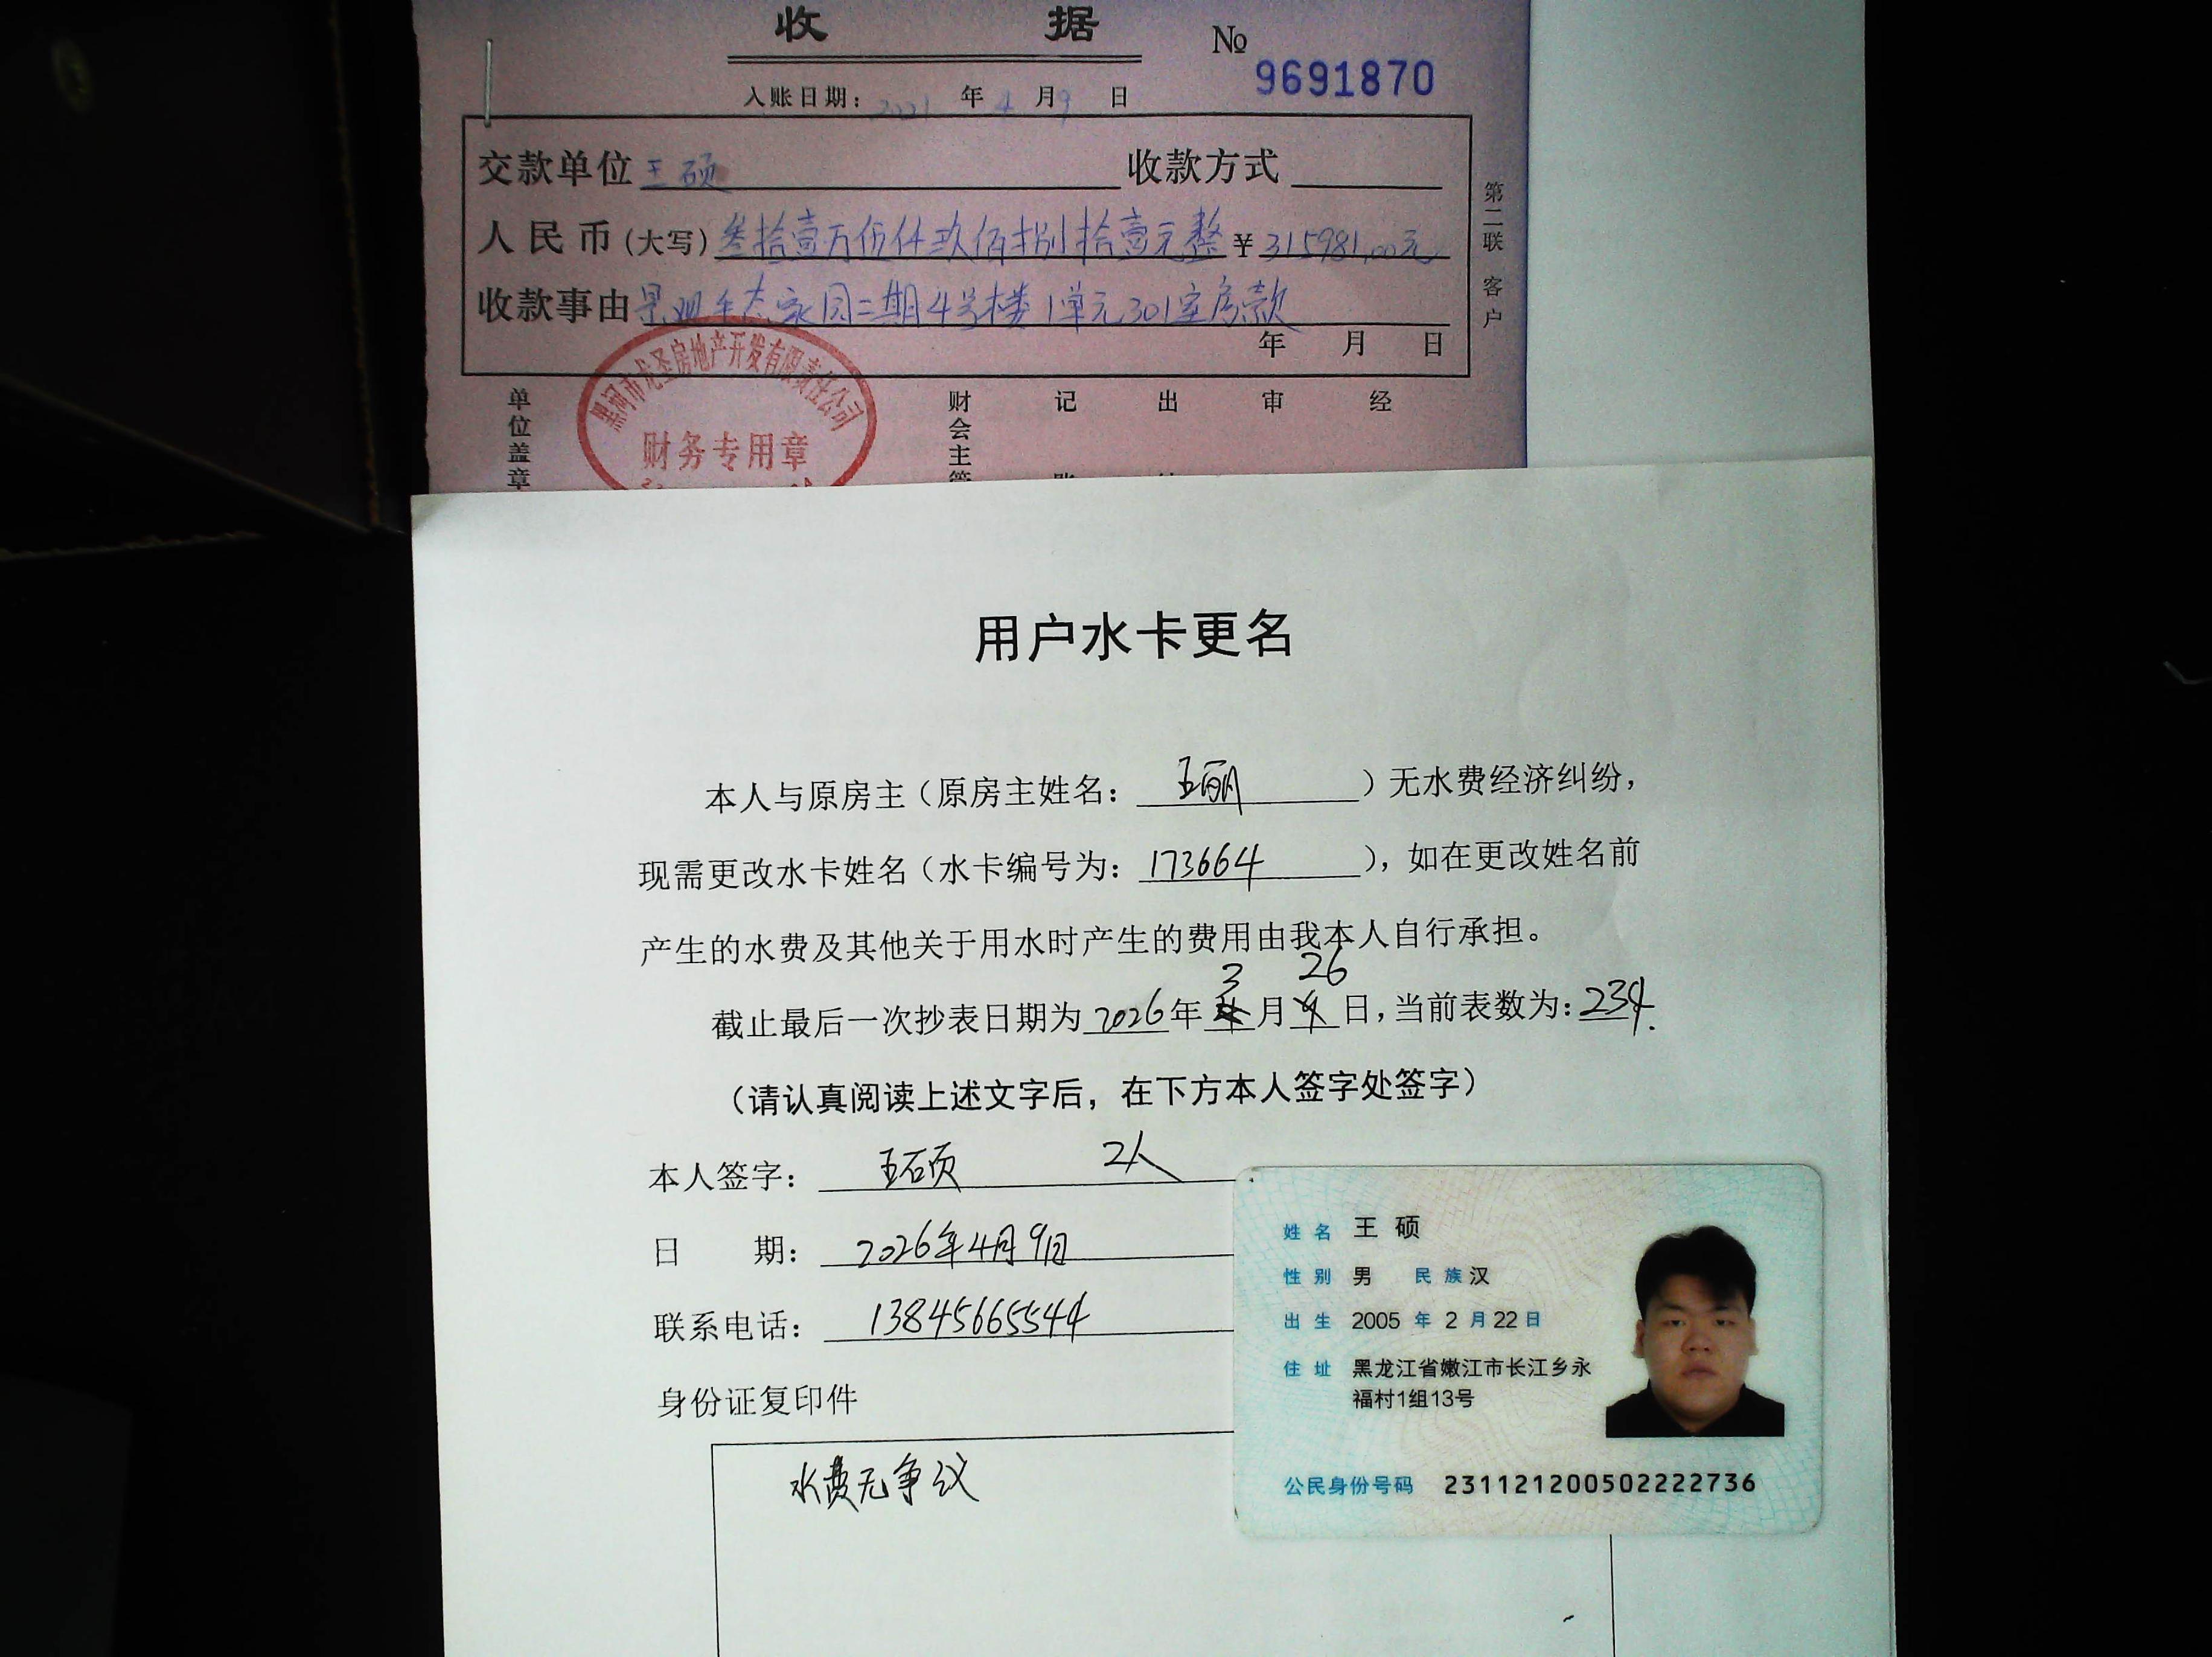 收 据
№ 9691870
入账日期：2021 年 4 月 9 日
交款单位 王硕 收款方式
人民币(大写) 叁拾壹万伍仟玖佰捌拾壹元整 ¥ 315981.00元
收款事由 景观生态家园二期4号楼1单元301室房款
年 月 日
第二联 客户
单位盖章
黑河市龙圣房地产开发有限责任公司
财务专用章
财会主管 记账 出纳 审 经
用户水卡更名
本人与原房主（原房主姓名：王丽）无水费经济纠纷，
现需更改水卡姓名（水卡编号为：173664），如在更改姓名前
产生的水费及其他关于用水时产生的费用由我本人自行承担。
截止最后一次抄表日期为2026年3月26日，当前表数为：234.
（请认真阅读上述文字后，在下方本人签字处签字）
本人签字： 王硕 2人
日 期： 2026年4月9日
联系电话： 13845665544
身份证复印件
水费无争议
姓名 王硕
性别 男 民族 汉
出生 2005 年 2 月 22 日
住址 黑龙江省嫩江市长江乡永
福村1组13号
公民身份号码 231121200502222736